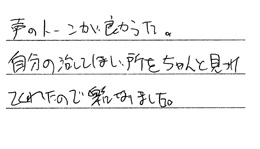 声のトーンが良かった。
自分の治してほしい所をちゃんと見つけ
てくれたので楽になりました。